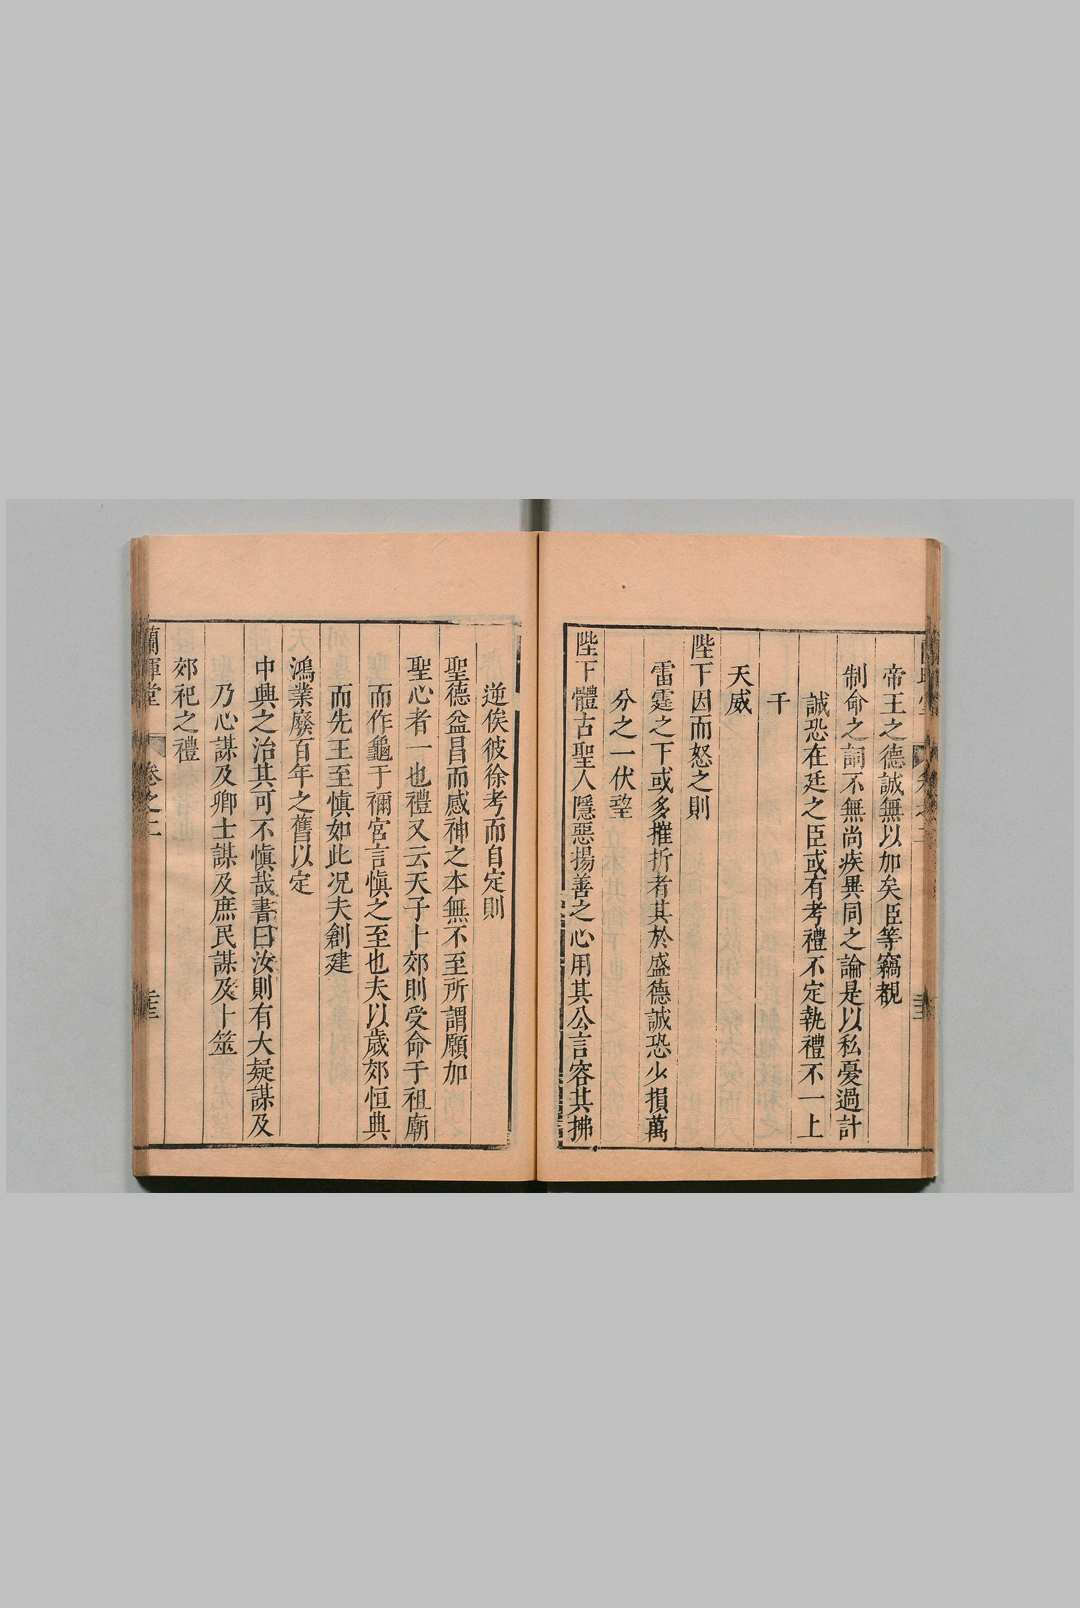 帝王之德誠無以加矣臣等竊覩
制命之詞不無尚疾異同之論是以私憂過計
誠恐在廷之臣或有考禮不定執禮不一上
干
天威
陛下因而怒之則
雷霆之下或多摧折者其於盛德誠恐少損萬
分之一伏望
陛下體古聖人隱惡揚善之心用其公言容其拂
逆俟彼徐考而自定則
聖德益昌而感神之本無不至所謂願加
聖心者一也禮又云天子卜郊則受命于祖廟
而作龜于禰宮言慎之至也夫以歲郊恒典
而先王至慎如此况夫創建
鴻業廢百年之舊以定
中興之治其可不慎哉書曰汝則有大疑謀及
乃心謀及卿士謀及庶民謀及卜筮
郊祀之禮
蘭暉堂 卷之二